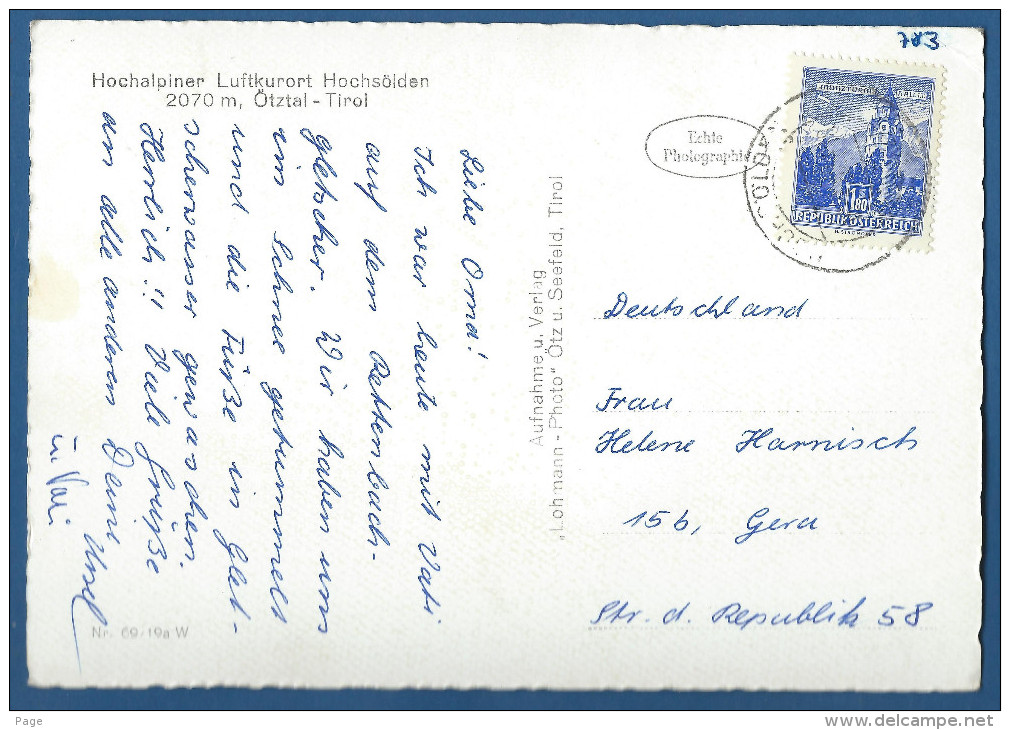 783
Hochalpiner Luftkurort Hochsölden
2070 m, Ötztal - Tirol
Echte
Photographie
1.80
REPUBLIK ÖSTERREICH
Liebe Oma!
Ich war heute mit Vati
auf dem Rettenbach-
gletscher. Wir haben uns
im Schnee getummelt
und die Füße im Glet-
scherwasser gewaschen.
Herrlich!! Viele Grüße
an alle anderen Deine
Ursel
u. Vati
Aufnahme u. Verlag
„Lohmann - Photo" Ötz u. Seefeld, Tirol
Deutschland
Frau
Helene Harnisch
15b, Gera
Str. d. Republik 58
Nr. 69/19a W
Page
www.delcampe.net